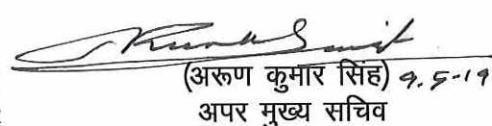 (अरूण कुमार सिंह) 9.5-19
अपर मुख्य सचिव